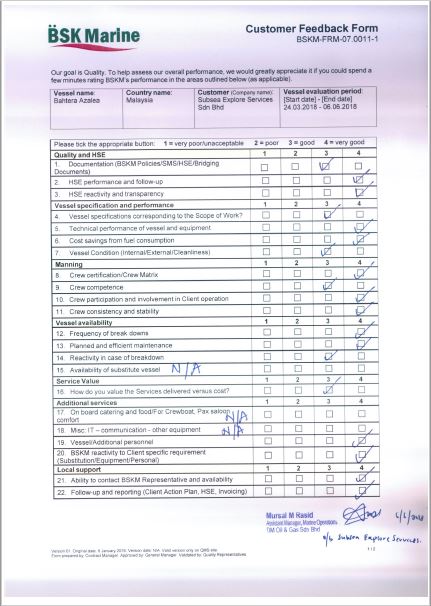 BSK Marine
Customer Feedback Form
BSKM-FRM-07.0011-1
Our goal is Quality. To help assess our overall performance, we would greatly appreciate it if you could spend a
few minutes rating BSKM's performance in the areas outlined below (as applicable).
Vessel name: Bahtera Azalea
Country name: Malaysia
Customer (Company name): Subsea Explore Services Sdn Bhd
Vessel evaluation period: [Start date] - [End date] 24.03.2018 - 06.06.2018
Please tick the appropriate button: 1 = very poor/unacceptable 2 = poor 3 = good 4 = very good
Quality and HSE 1 2 3 4
1. Documentation (BSKM Policies/SMS/HSE/Bridging
Documents)
2. HSE performance and follow-up
3. HSE reactivity and transparency
Vessel specification and performance 1 2 3 4
4. Vessel specifications corresponding to the Scope of Work?
5. Technical performance of vessel and equipment
6. Cost savings from fuel consumption
7. Vessel Condition (Internal/External/Cleanliness)
Manning 1 2 3 4
8 Crew certification/Crew Matrix
9. Crew competence
10. Crew participation and involvement in Client operation
11. Crew consistency and stability
Vessel availability 1 2 3 4
12. Frequency of break downs
13. Planned and efficient maintenance
14. Reactivity in case of breakdown
15. Availability of substitute vessel N/A
Service Value 1 2 3 4
16. How do you value the Services delivered versus cost?
Additional services 1 2 3 4
17. On board catering and food/For Crewboat, Pax saloon
comfort N/A
18. Misc: IT – communication - other equipment N/A
19. Vessel/Additional personnel
20. BSKM reactivity to Client specific requirement
(Substitution/Equipment/Personal)
Local support 1 2 3 4
21. Ability to contact BSKM Representative and availability
22. Follow-up and reporting (Client Action Plan, HSE, Invoicing)
Mursal M Rasid
Assistant Manager, Marine Operations
TIM Oil & Gas Sdn Bhd
Subsea Explore Services.
Version 01 Original date: 5 January 2016. Version date: N/A. Valid version only on QMS site.
Form prepared by: Contract Manager Approved by: General Manager Validated by: Quality Representatives
1 / 2